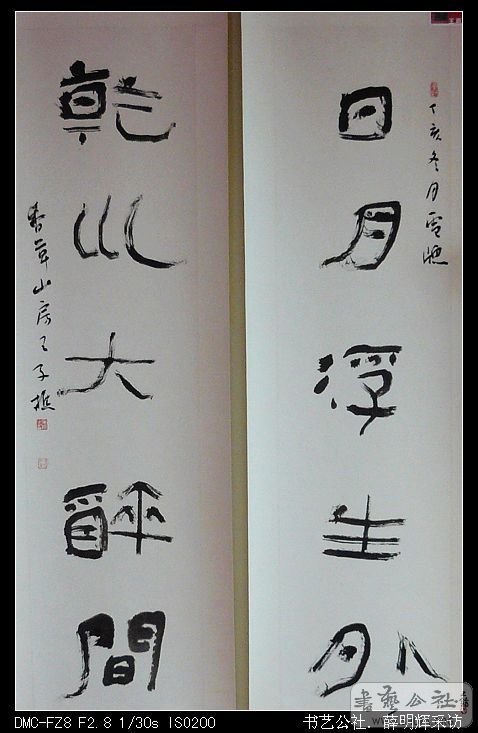 日月浮生外
丁亥冬月雪
乾巛大醉間
草山房王子
書藝公社
DMC-FZ8 F2.8 1/30s ISO200
书艺公社.薛明辉采访